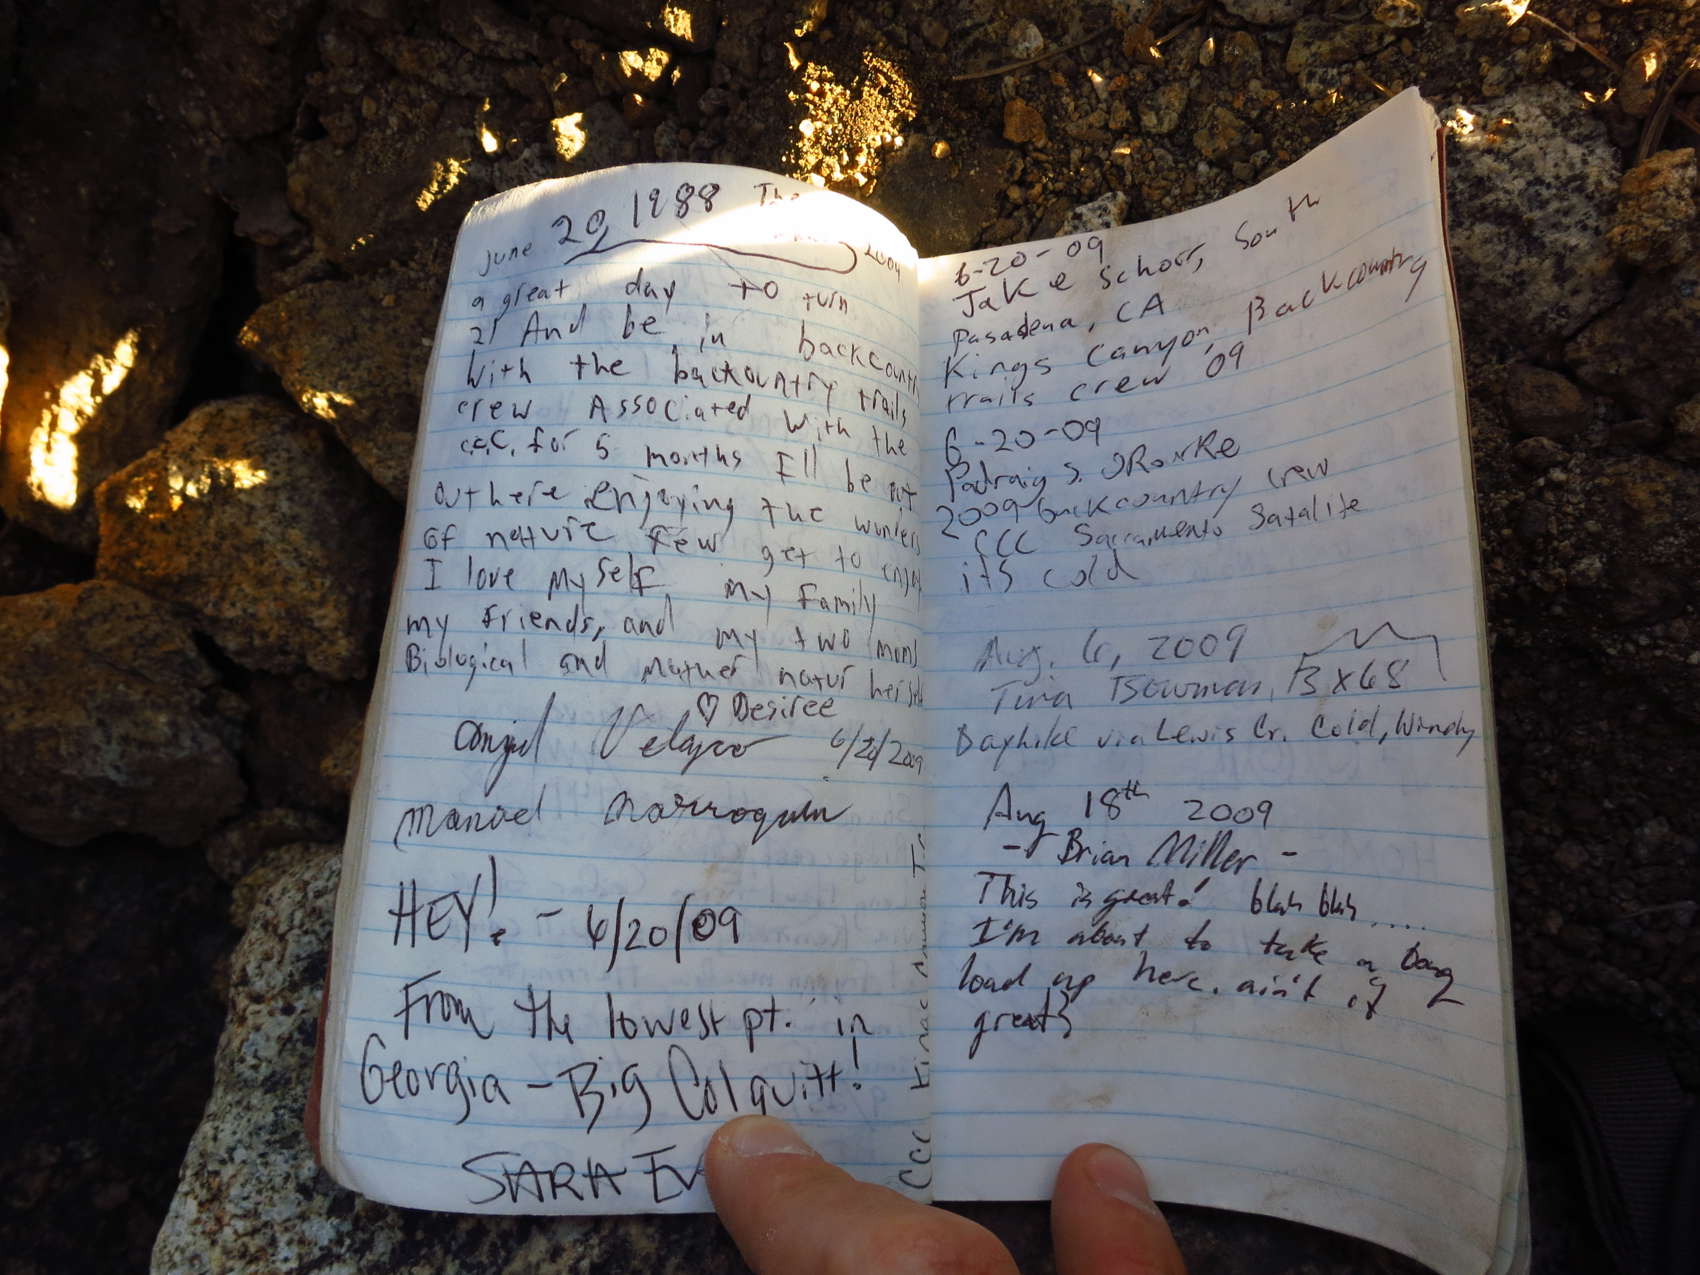 June 20, 1988 The 2009
a great day to turn
21 And be in backcountr
with the backountry trails
crew Associated with the
C.C.C. for 5 months I'll be out
out here enjoying the wonders
of nature few get to enjoy
I love myself, my family
my friends, and my two moms
Biological and Mather natur herself
♡ Desiree
Angel Velazco 6/20/2009
Manuel Marroquin
HEY! - 6/20/09
From the lowest pt. in
Georgia - Big Colquitt!
SARA EV
CCC
6-20-09
Jake Schorr, South
Pasadena, CA
Kings Canyon, Backcountry
trails crew 09
6-20-09
Padraig S. ORourke
2009 backcountry crew
CCC Sacramento Satalite
its cold
Aug. 6, 2009
Tina Bowman, B x 68
Dayhike via Lewis Cr. Cold, Windy
Aug 18th 2009
- Brian Miller -
This is great! blah blah.....
I'm about to take a bong
load up here. ain't it
great?